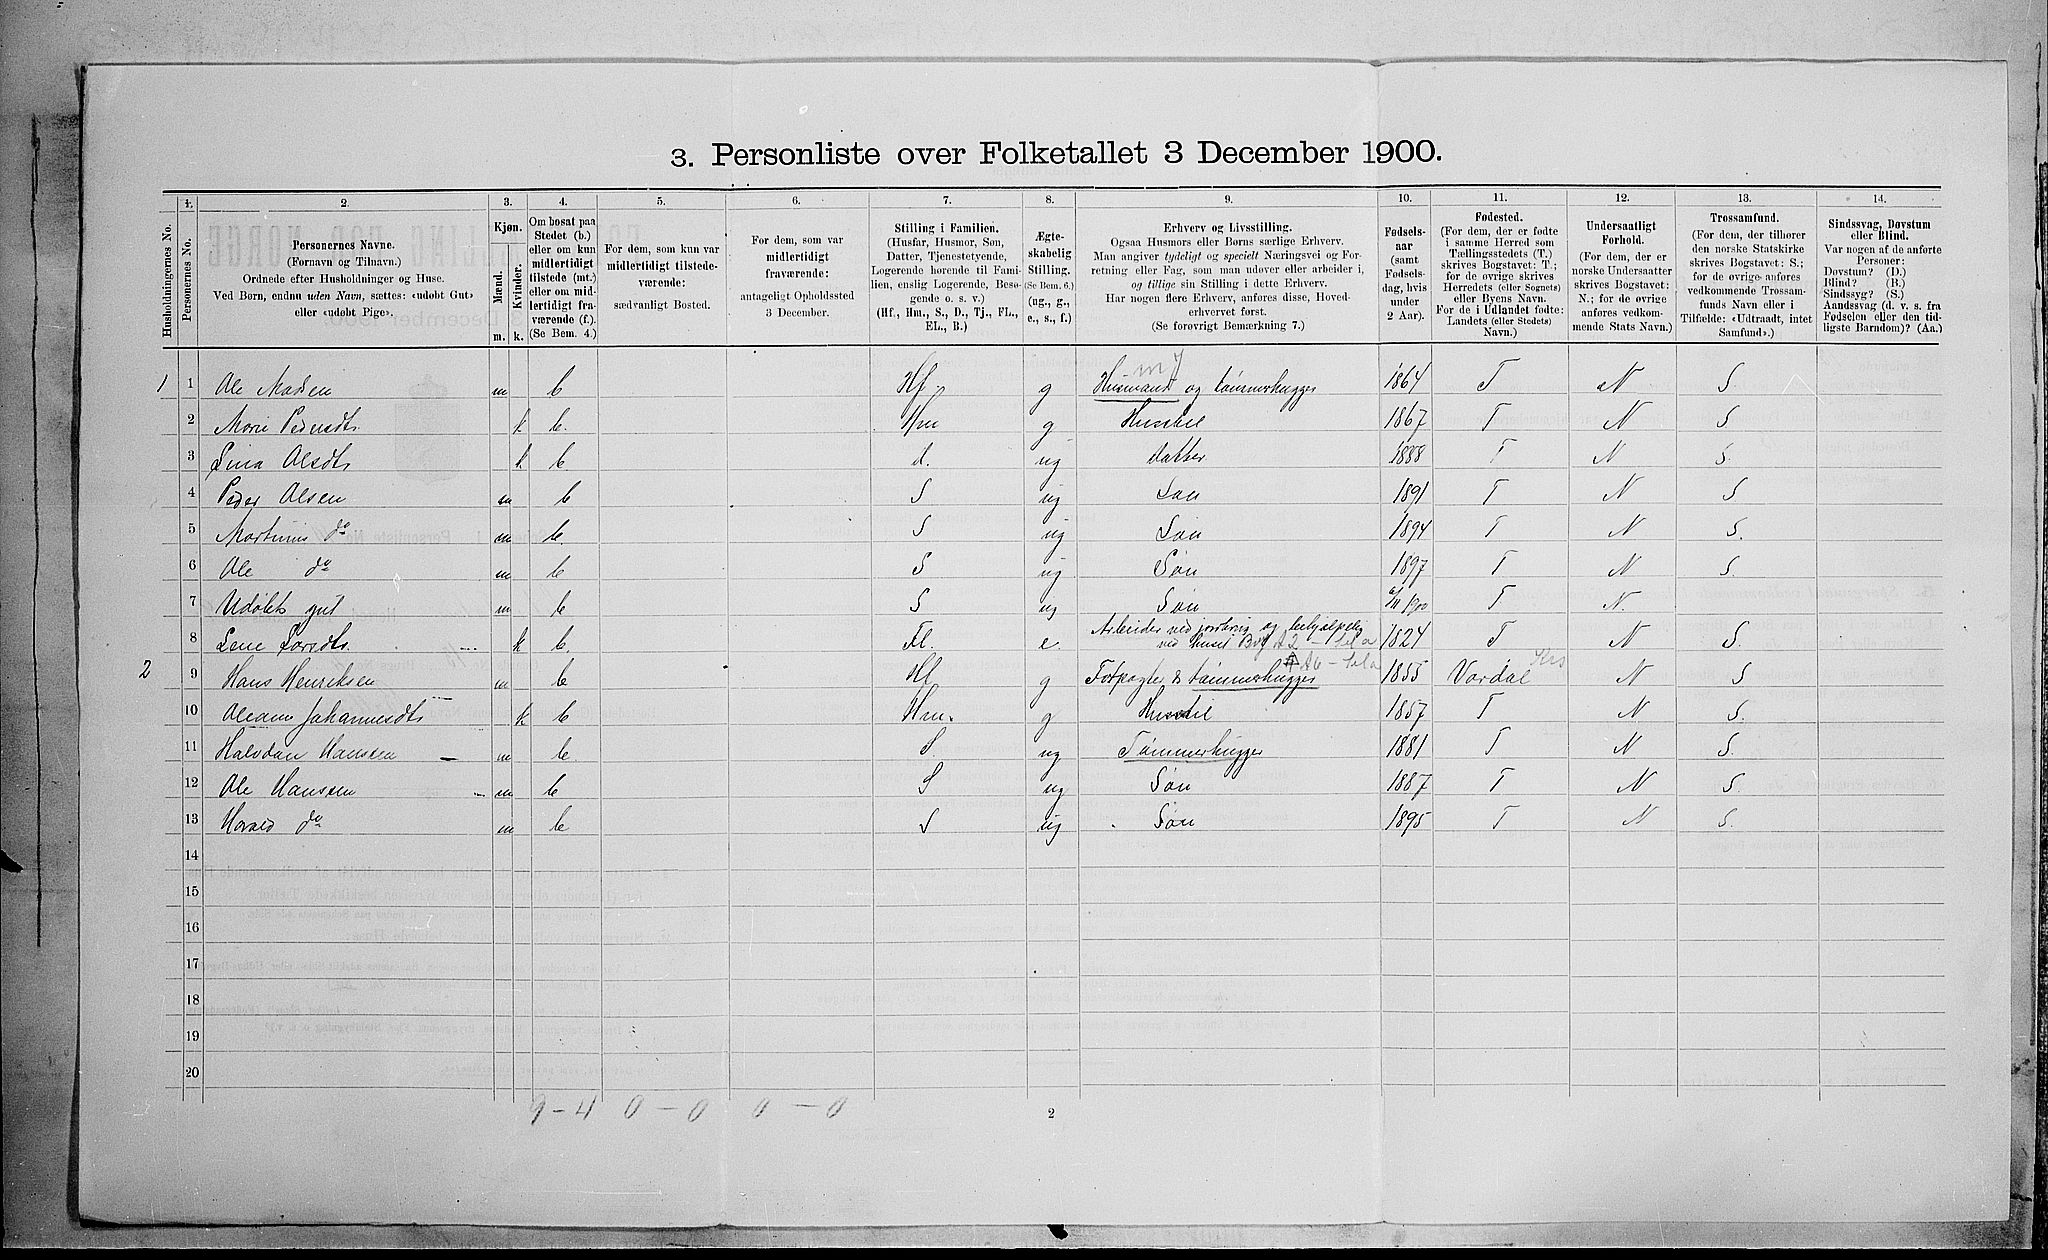 3. Personliste over Folketallet 3 December 1900.
1. 2. 3. 4. 5. 6. 7. 8. 9. 10. 11. 12. 13. 14.
Husholdningernes No.
Personernes No.
Personernes Navne.
(Fornavn og Tilnavn.)
Ordnede efter Husholdninger og Huse.
Ved Børn, endnu uden Navn, sættes: «udøbt Gut»
eller «udøbt Pige».
Kjøn.
Mænd.
Kvinder.
m. k.
Om bosat paa
Stedet (b.)
eller om kun
midlertidigt
tilstede (mt.)
eller om mid-
lertidigt fra-
værende (f.)
(Se Bem. 4.)
For dem, som kun var
midlertidigt tilstede-
værende:
sædvanligt Bosted.
For dem, som var
midlertidigt
fraværende:
antageligt Opholdssted
3 December.
Stilling i Familien.
(Husfar, Husmor, Søn,
Datter, Tjenestetyende,
Logerende hørende til Fami-
lien, enslig Logerende, Besø-
gende o. s. v.)
(Hf., Hm., S., D., Tj., FL.,
EL., B.)
Ægte-
skabelig
Stilling.
(Se Bem. 6.)
(ug., g.,
e., s., f.)
Erhverv og Livsstilling.
Ogsaa Husmors eller Børns særlige Erhverv.
Man angiver tydeligt og specielt Næringsvei og For-
retning eller Fag, som man udøver eller arbeider i,
og tillige sin Stilling i dette Erhverv.
Har nogen flere Erhverv, anføres disse, Hoved-
erhvervet først.
(Se forøvrigt Bemærkning 7.)
Fødsels-
aar
(samt
Fødsels-
dag, hvis
under
2 Aar).
Fødested.
(For dem, der er fødte
i samme Herred som
Tællingsstedets (T.)
skrives Bogstavet: T.;
for de øvrige skrives
Herredets (eller Sognets)
eller Byens Navn.
For de i Udlandet fødte:
Landets (eller Stedets)
Navn.)
Undersaatligt
Forhold.
(For dem, der er
norske Undersaatter
skrives Bogstavet:
N.; for de øvrige
anføres vedkom-
mende Stats Navn.)
Trossamfund.
(For dem, der tilhører
den norske Statskirke
skrives Bogstavet: S.;
for de øvrige anføres
vedkommende Trossam-
funds Navn eller i
Tilfælde: «Udtraadt, intet
Samfund».)
Sindssvag, Døvstum
eller Blind.
Var nogen af de anførte
Personer:
Døvstum? (D.)
Blind? (B.)
Sindssyg? (S.)
Aandssvag (d. v. s. fra
Fødselen eller den tid-
ligste Barndom)? (Aa.)
1 1 Ole Madsen m b Hf. g Husmand og tømmerhugger 1864 T N S
2 Marie Pedersdtr k b. Hm g Husstel 1867 T N S
3 Lina Olsdtr k b d. ug datter 1888 T N S.
4 Peder Olsen m b S ug Søn 1891 T N S
5 Martinius do m b. S ug Søn 1894 T N S.
6 Ole do m b S ug Søn 1897 T N S.
7 Udøbt gut m b S ug Søn 1900 T N.
8 Lene k b. FL. e. Arbeider ved jordbrug og behjælpelig
ved huset 1824 T N S.
2 9 Hans Henriksen m b Hf g Forpagter & tømmerhugger 1855 Vardal N S
10 Oleane Johannesdtr k b Hm. g Husstel 1857 T N S.
11 Halvdan Hansen m b. S ug Tømmerhugger 1881 T N S.
12 Ole Hansen m b S ug Søn 1887 T N S.
13 Harald do m b S ug Søn 1895 T N S.
14
15
16
17
18
19
20
9 - 4 0 - 0 0 - 0
2